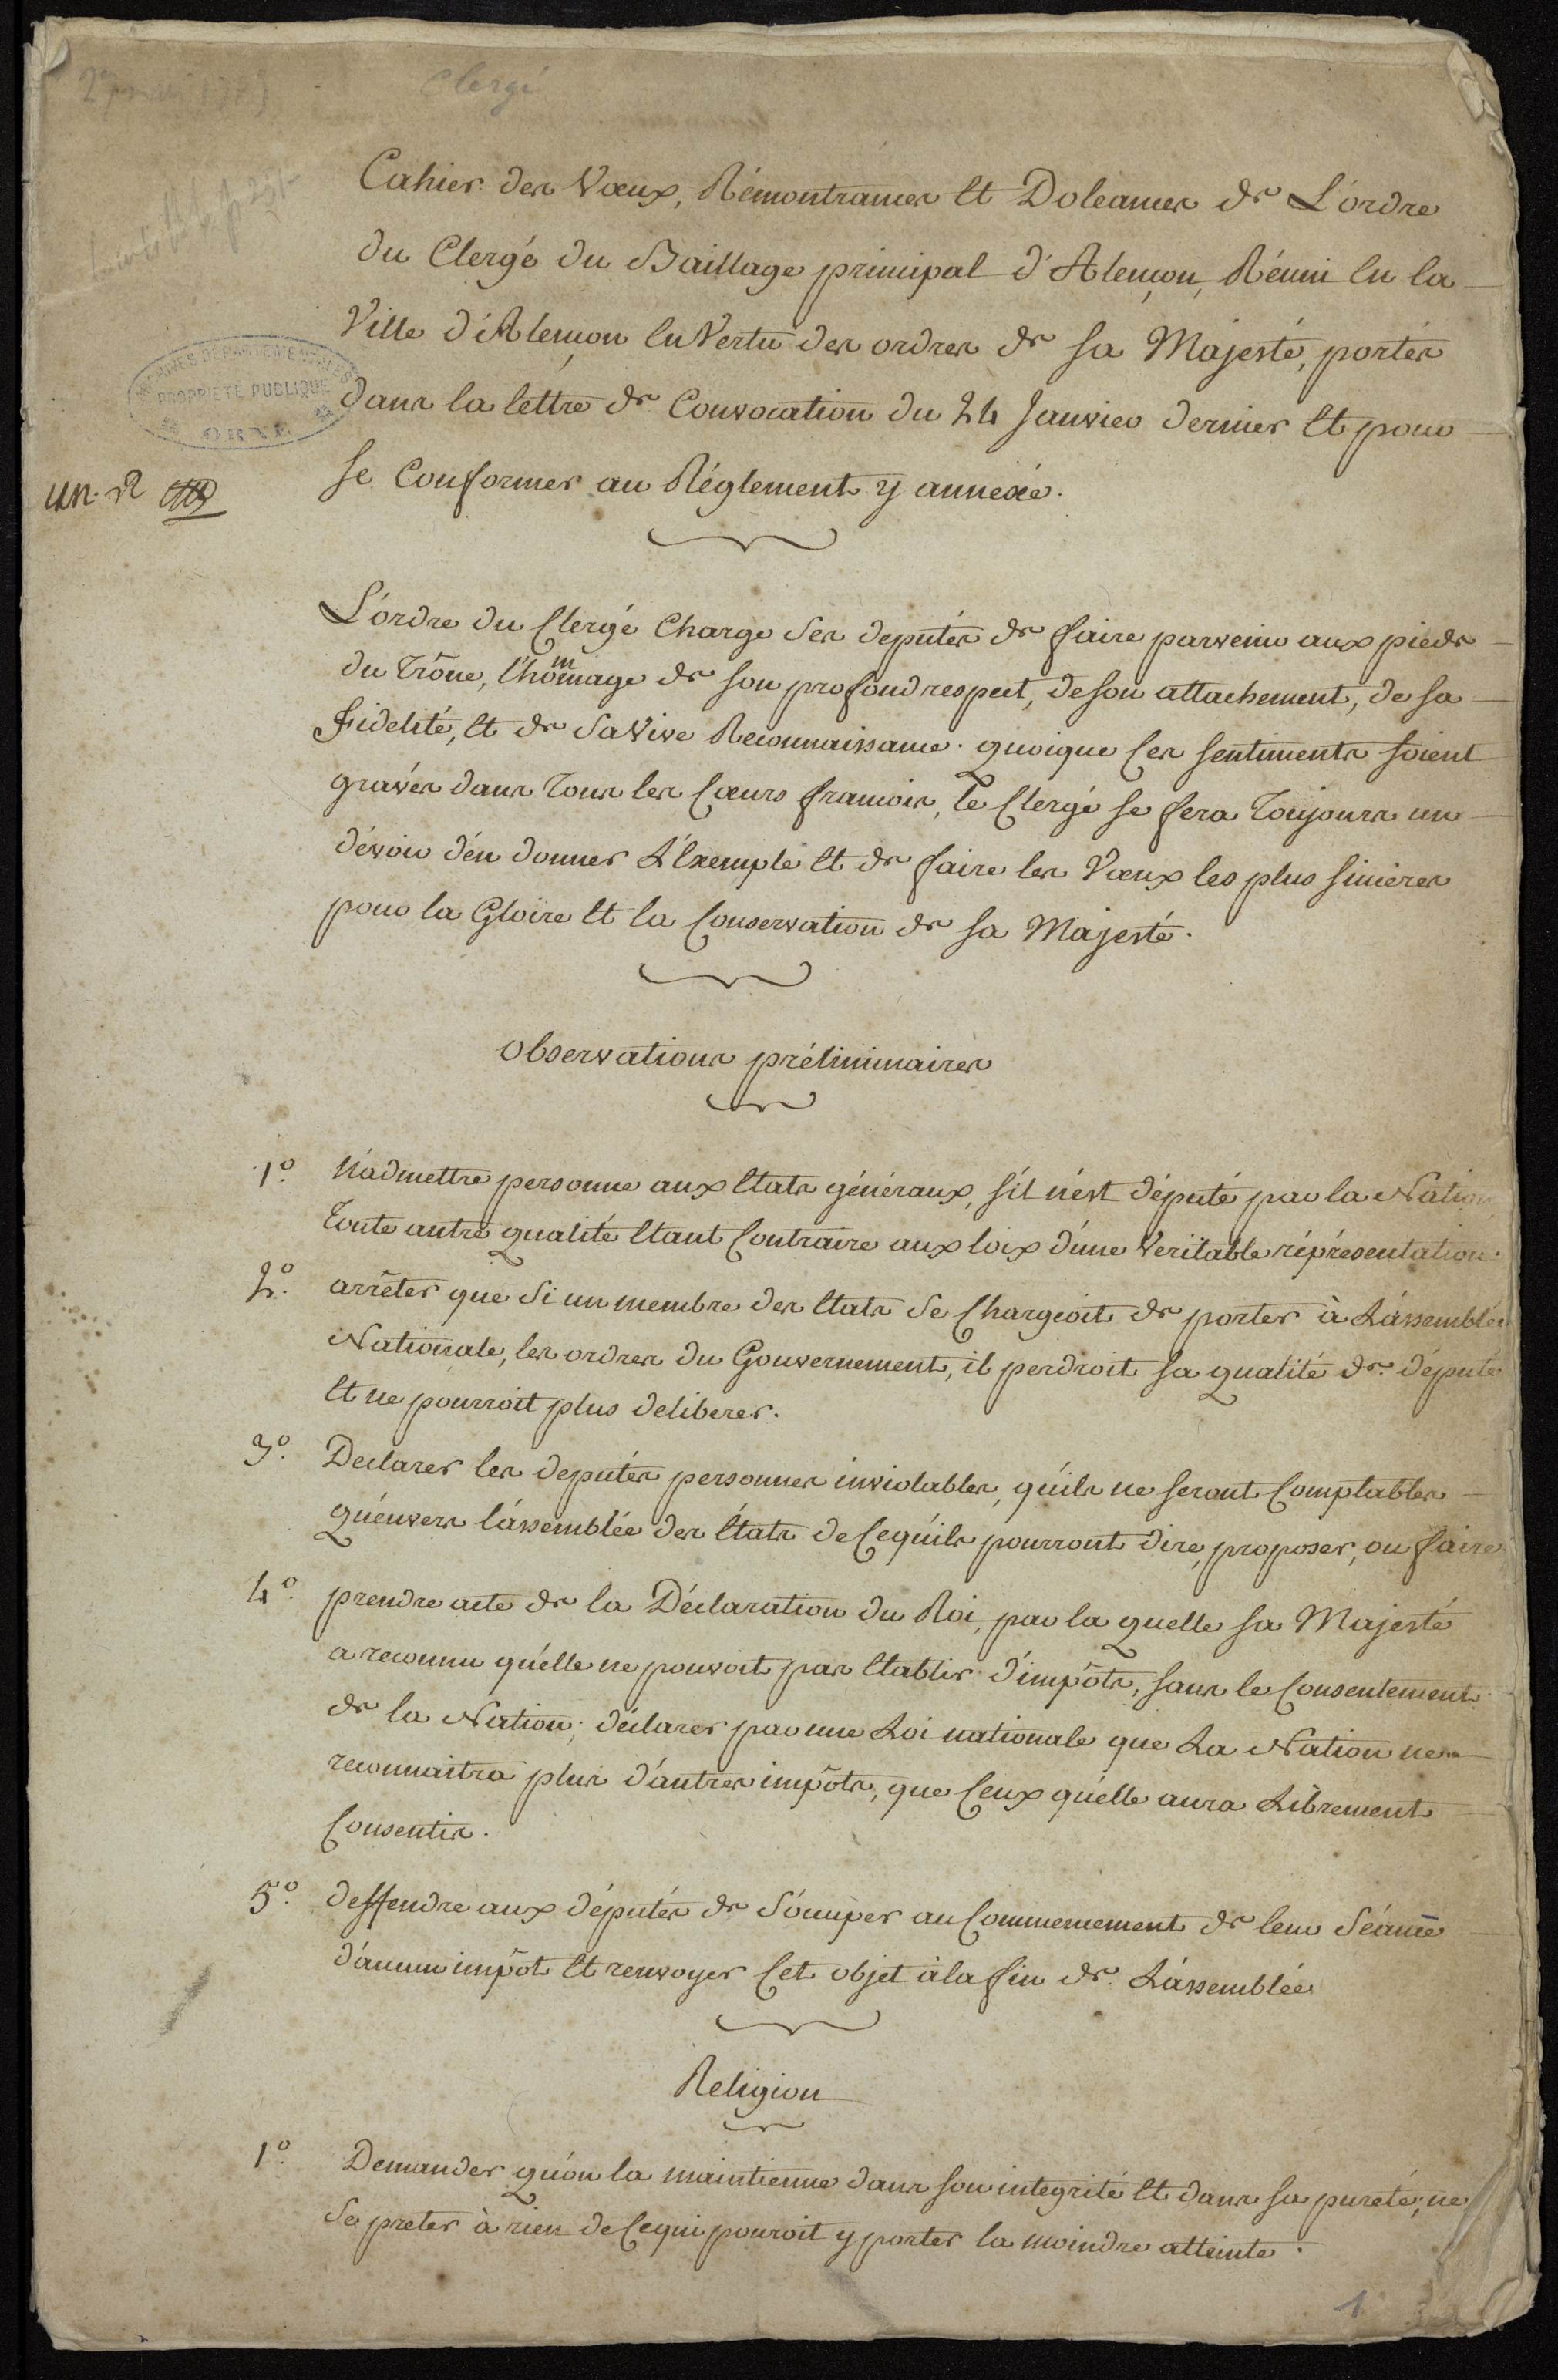 Clergé
Cahier des Vœux, Rémontrances Et Doleances de L'ordre
du Clergé du Baillage principal d'Alençon, Réuni En la
Ville d'Alençon En Vertu des ordres de sa Majesté, portés
dans la lettre de Convocation du 24 Janvier dernier Et pour
se Conformer au Réglement y annexé.
ARCHIVES DÉPARTEMENTALES
PROPRIÉTÉ PUBLIQUE
ORNE
un. R
L'ordre du Clergé Charge ses deputés de faire parvenir aux pieds
du Trône, l'hommage de son profond respect, de son attachement, de sa
fidelité, Et de sa Vive Reconnaissance. quoique Ces sentiments soient
gravés dans Tous les Cœurs francois, le Clergé se fera Toujours un
dévoir d'en donner L'Exemple Et de faire les Vœux les plus sincéres
pour la Gloire Et la Conservation de sa Majesté.
Observations préliminaires
1º. N'admettre personne aux Etats généraux, s'il n'est député par la Nation
Toute autre qualité Etant Contraire aux loix d'une Veritable réprésentation.
2º. arrêter que si un membre des Etats se Chargeoit de porter à L'assemblée
Nationale, les ordres du Gouvernement, il perdroit sa qualité de député
Et ne pourroit plus deliberer.
3º. Declarer les deputés personnes inviolables, qu'ils ne seront Comptables
qu'envers l'assemblée des États de Ce qu'ils pourront dire, proposer, ou faire.
4º. prendre acte de la Déclaration du Roi, par la quelle sa Majesté
a reconnu qu'elle ne pouvoit pas Etablir d'impôts, sans le Consentement
de la Nation; déclarer par une Loi nationale que La Nation ne
reconnaitra plus d'autres impôts, que Ceux qu'elle aura Librement
Consentis.
5º. deffendre aux députés de s'occuper au Commencement de leur Séance
d'aucun impôt Et renvoyer Cet objet à la fin de L'assemblée
Religion
1º. Demander qu'on la maintienne dans son integrité Et dans sa pureté; ne
se preter à rien de Ce qui pouroit y porter la moindre atteinte.
1